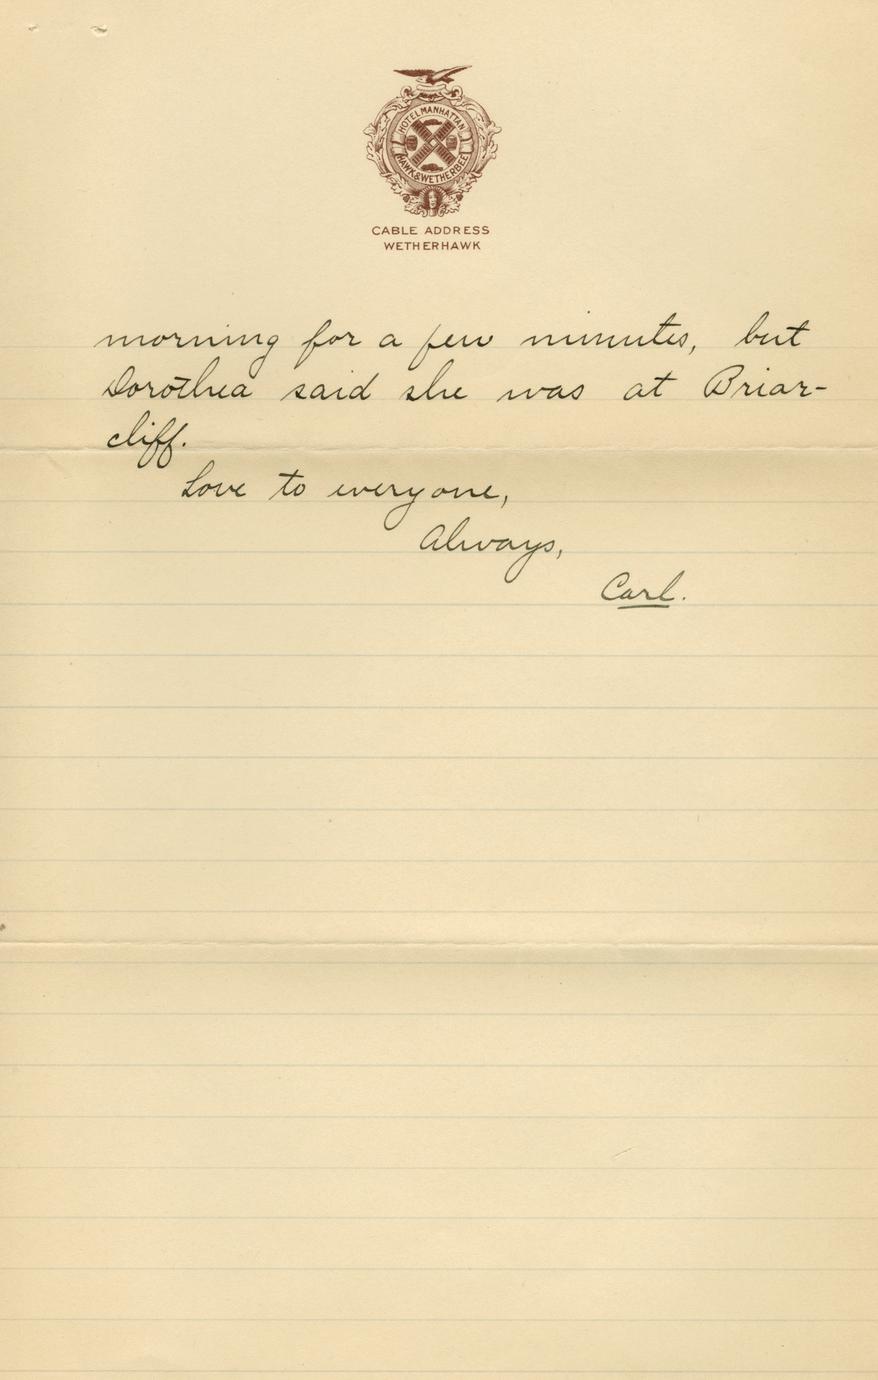 HOTEL MANHATTAN
HAWK & WETHERBEE
CABLE ADDRESS
WETHERHAWK
morning for a few minutes, but
Dorothea said she was at Briar-
cliff.
Love to everyone,
Always,
Carl.